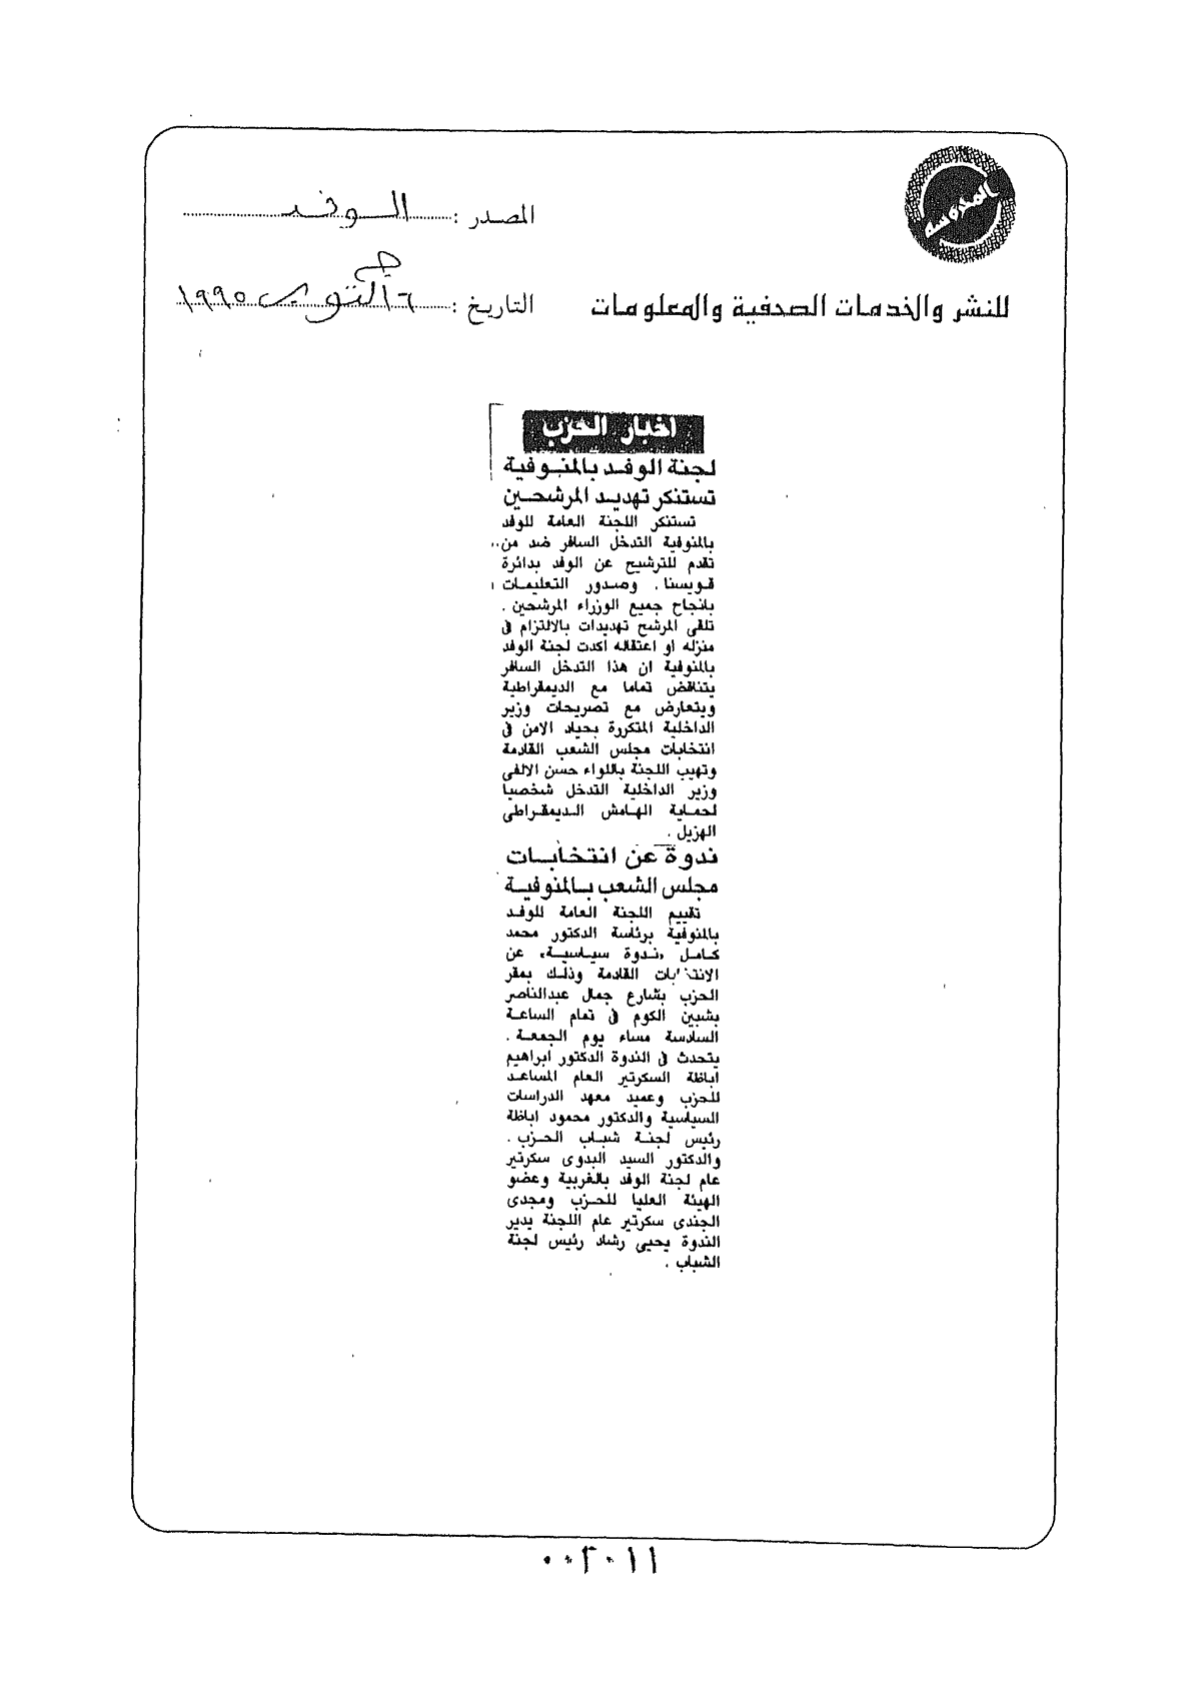 المصدر : الوفد
للنشر والخدمات الصحفية والمعلومات
التاريخ : ٦ اكتوبر ١٩٩٥
اخبار الحزب
لجنة الوفد بالمنوفية
تستنكر تهديد المرشحين
تستنكر اللجنة العامة للوفد
بالمنوفية التدخل السافر ضد من
تقدم للترشيح عن الوفد بدائرة
قويسنا . وصدور التعليمات
بانجاح جميع الوزراء المرشحين .
تلقى المرشح تهديدات بالالتزام فى
منزله او اعتقاله أكدت لجنة الوفد
بالمنوفية ان هذا التدخل السافر
يتناقض تماما مع الديمقراطية
ويتعارض مع تصريحات وزير
الداخلية المتكررة بحياد الامن فى
انتخابات مجلس الشعب القادمة
وتهيب اللجنة باللواء حسن الالفى
وزير الداخلية التدخل شخصيا
لحماية الهامش الديمقراطى
الهزيل .
ندوة عن انتخابات
مجلس الشعب بالمنوفية
تقييم اللجنة العامة للوفد
بالمنوفية برئاسة الدكتور محمد
كامل «ندوة سياسية» عن
الانتخابات القادمة وذلك بمقر
الحزب بشارع جمال عبدالناصر
بشبين الكوم فى تمام الساعة
السادسة مساء يوم الجمعة .
يتحدث فى الندوة الدكتور ابراهيم
اباظة السكرتير العام المساعد
للحزب وعميد معهد الدراسات
السياسية والدكتور محمود اباظة
رئيس لجنة شباب الحزب .
والدكتور السيد البدوى سكرتير
عام لجنة الوفد بالغربية وعضو
الهيئة العليا للحزب ومجدى
الجندى سكرتير عام اللجنة يدير
الندوة يحيى رشاد رئيس لجنة
الشباب .